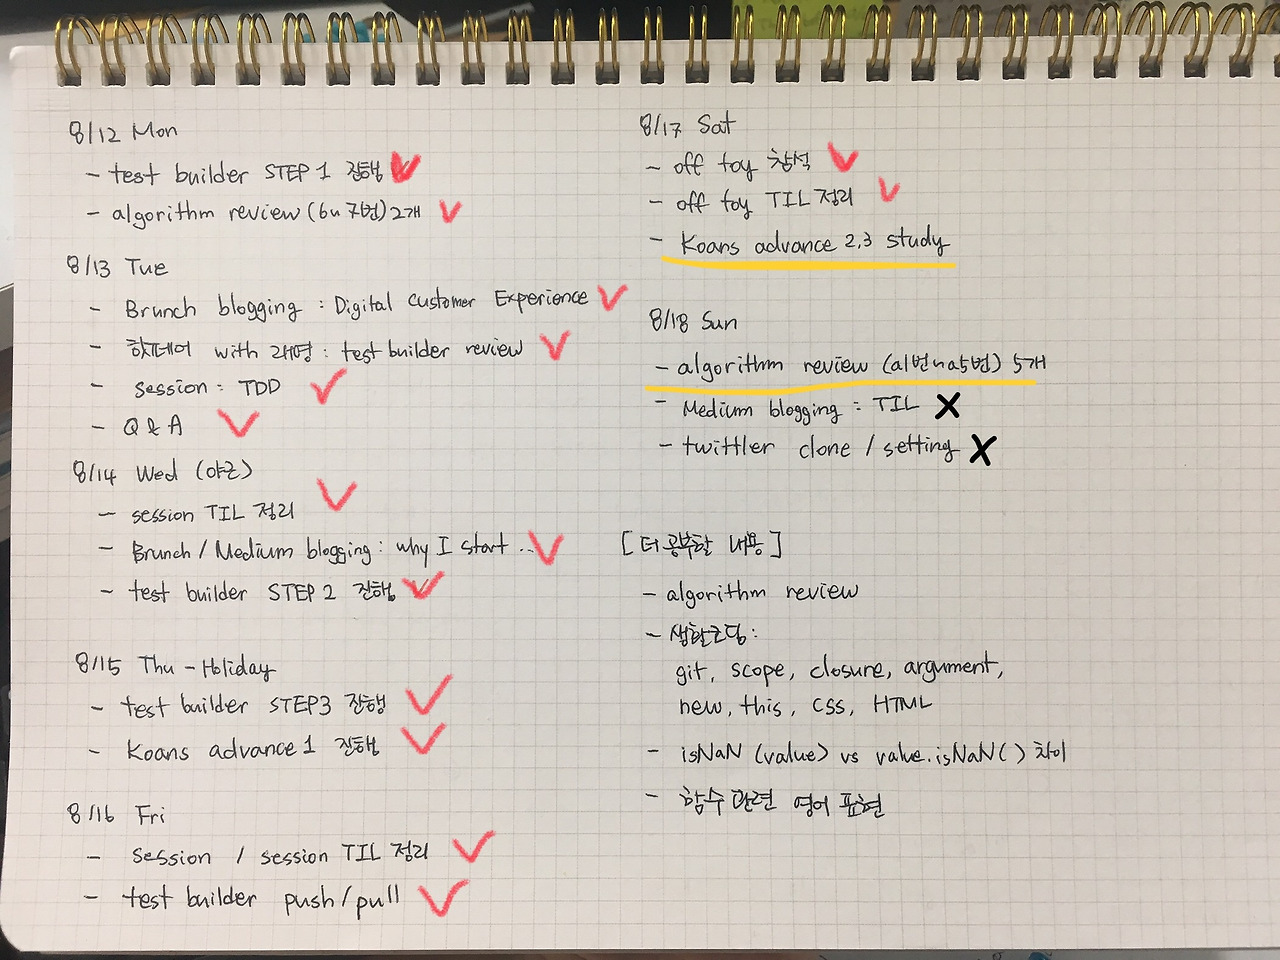 8/12 Mon
- test builder STEP 1 진행
- algorithm review (6~7번) 2개
8/13 Tue
- Brunch blogging : Digital Customer Experience
- with 래영 : test builder review
- session : TDD
- Q & A
8/14 Wed (야근)
- session TIL 정리
- Brunch / Medium blogging : why I start ..
- test builder STEP 2 진행
8/15 Thu - Holiday
- test builder STEP3 진행
- Koans advance 1 진행
8/16 Fri
- Session / session TIL 정리
- test builder push/pull
8/17 Sat
- off toy 참석
- off toy TIL 정리
- Koans advance 2,3 study
8/18 Sun
- algorithm review (a1번~a5번) 5개
- Medium blogging : TIL
- twittler clone / setting
[더 공부할 내용]
- algorithm review
- 생활코딩 :
git, scope, closure, argument,
new, this, css, HTML
- isNaN (value) vs value.isNaN() 차이
- 함수 관련 영어 표현